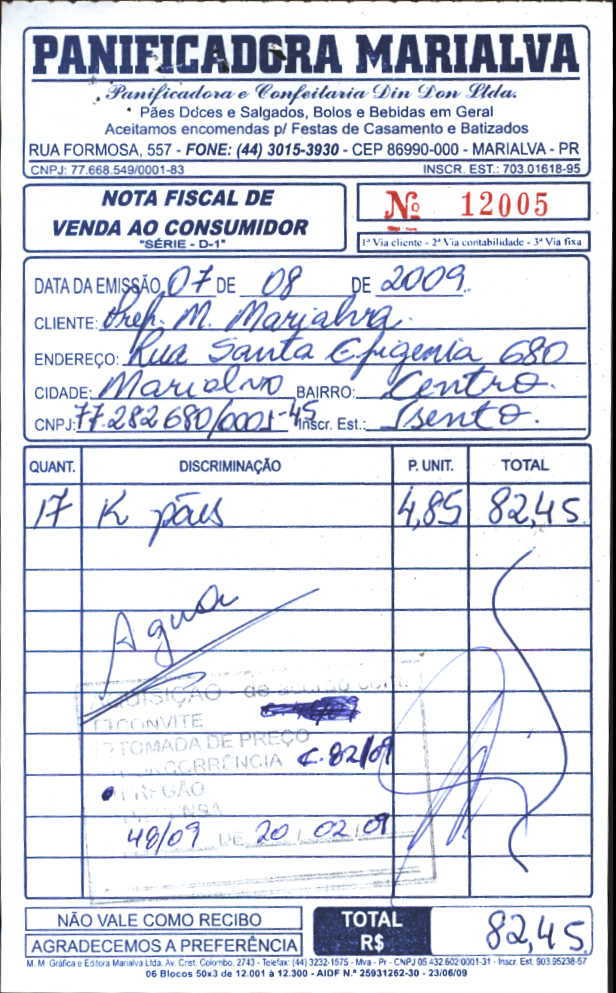 PANIFICADORA MARIALVA
Panificadora e Confeitaria Din Don Ltda.
Pães Doces e Salgados, Bolos e Bebidas em Geral
Aceitamos encomendas p/ Festas de Casamento e Batizados
RUA FORMOSA, 557 - FONE: (44) 3015-3930 - CEP 86990-000 - MARIALVA - PR
CNPJ: 77.668.549/0001-83 INSCR. EST.: 703.01618-95
NOTA FISCAL DE
VENDA AO CONSUMIDOR
"SÉRIE - D-1"
Nº 12005
1ª Via cliente - 2ª Via contabilidade - 3ª Via fixa
DATA DA EMISSÃO 07 DE 08 DE 2009
CLIENTE: Pref. M. Marialva
ENDEREÇO: Rua Santa Efigenia 680
CIDADE: Marialva BAIRRO: Centro.
CNPJ: 77.282680/0001-45 Inscr. Est.: Isento.
QUANT. DISCRIMINAÇÃO P. UNIT. TOTAL
17 K pães 4,85 82,45
Agua
AQUISIÇÃO - de acordo com:
CONVITE
TOMADA DE PREÇO
CONCORRÊNCIA C.82/09
PREGÃO
DISPENSA
48/09 DE 20 02 09
NÃO VALE COMO RECIBO
AGRADECEMOS A PREFERÊNCIA
TOTAL
R$ 82,45
M. M. Gráfica e Editora Marialva Ltda. Av. Crist. Colombo, 2743 - Telefax: (44) 3232-1575 - Mva - Pr - CNPJ 05.432.602/0001-31 - Inscr. Est. 903.95238-57
06 Blocos 50x3 de 12.001 à 12.300 - AIDF N.º 25931262-30 - 23/06/09